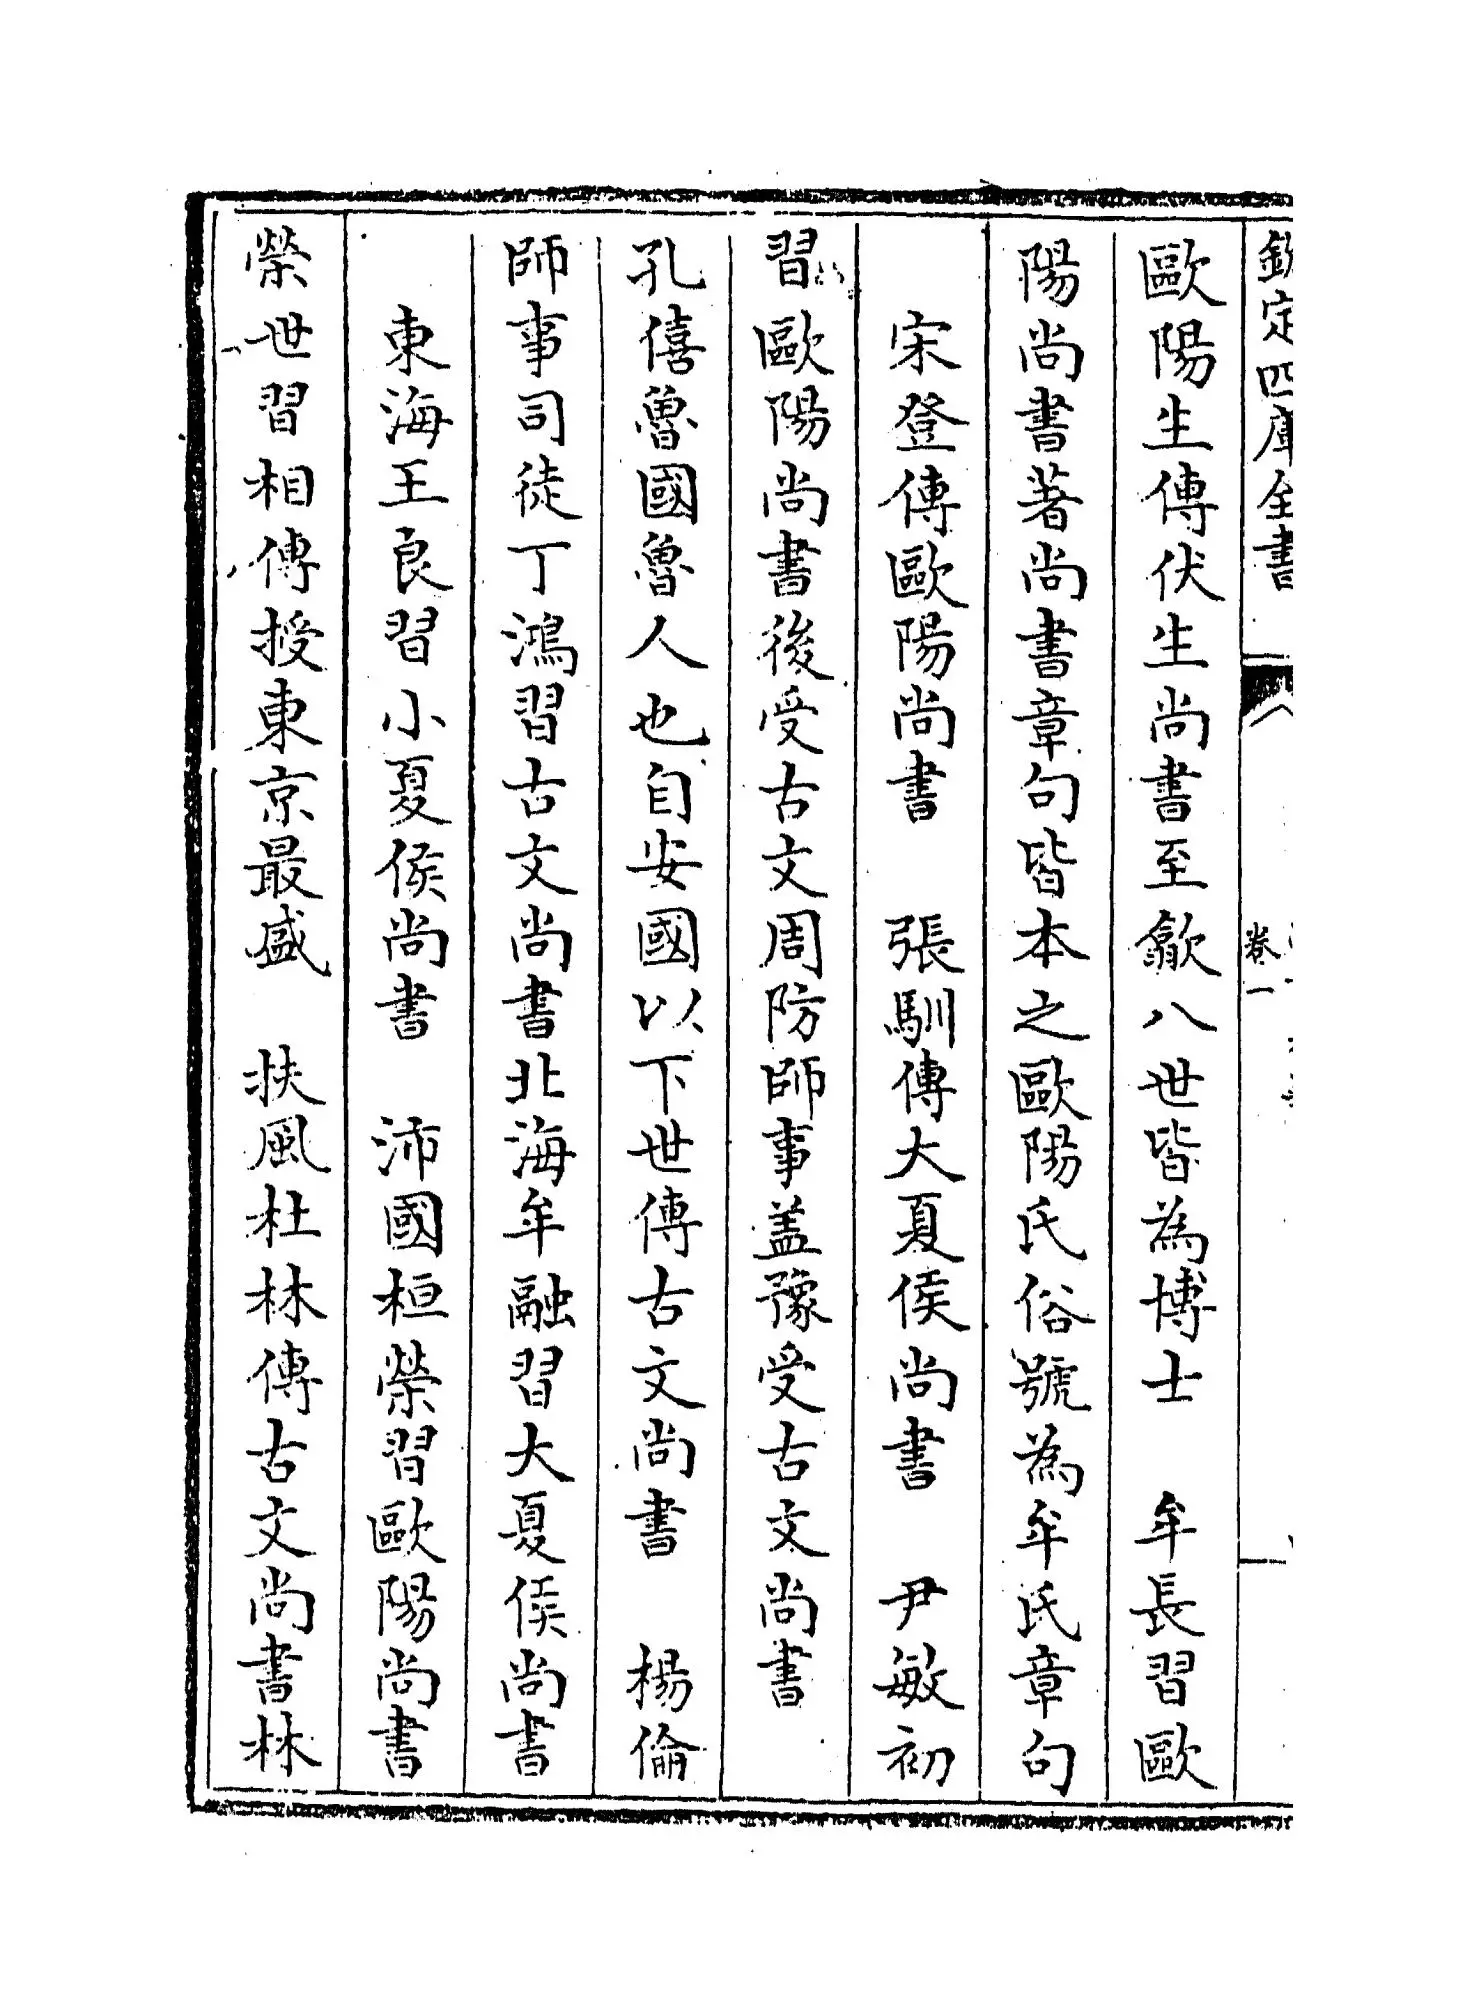 欽定四庫全書
卷一
歐陽生傳伏生尚書至歙八世皆為博士　牟長習歐
陽尚書著尚書章句皆本之歐陽氏俗號為牟氏章句
宋登傳歐陽尚書　張馴傳大夏侯尚書　尹敏初
習歐陽尚書後受古文周防師事盖豫受古文尚書
孔僖魯國魯人也自安國以下世傳古文尚書　楊倫
師事司徒丁鴻習古文尚書北海牟融習大夏侯尚書
東海王良習小夏侯尚書　沛國桓榮習歐陽尚書
榮世習相傳授東京最盛　扶風杜林傳古文尚書林